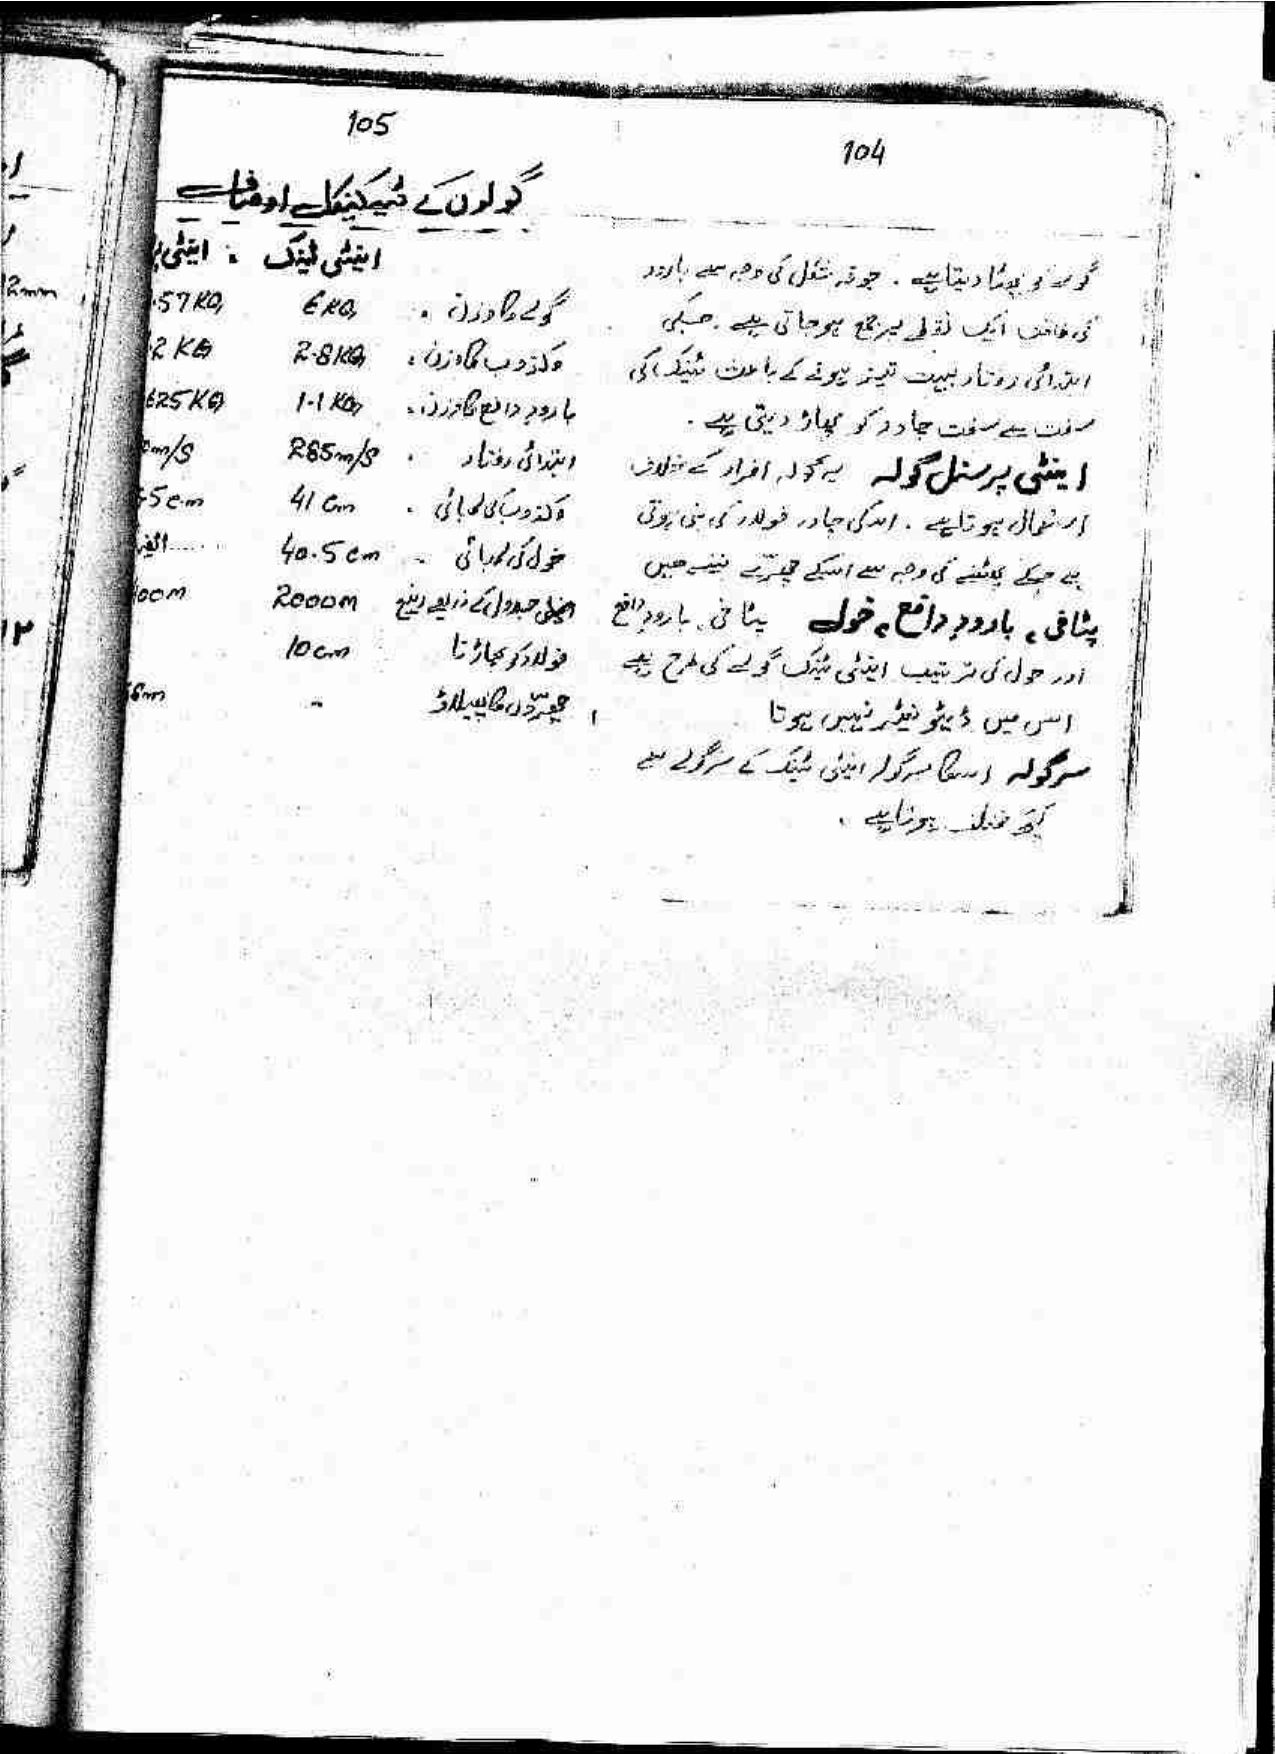 104
گولے کو پھٹا دیتا ہے ۔ جوف شکل کی وجہ سے بارود
کی طاقت ایک نقطے پر جمع ہو جاتی ہے ۔ جسکی
ابتدائی رفتار بہت تیز ہونے کے باعث ٹینک کی
سخت سے سخت چادر کو پھاڑ دیتی ہے ۔
اینٹی پرسنل گولہ یہ گولہ افراد کے خلاف
استعمال ہوتا ہے ۔ اسکی چادر فولاد کی بنی ہوتی
ہے جسکے پھٹنے کی وجہ سے اسکے چھرّے بنتے ہیں
پٹاقی ، بارود دافع ، خول پٹاقی ، بارود دافع
اور خول کی ترتیب اینٹی ٹینک گولے کی طرح ہے
اس میں ڈیٹونیٹر نہیں ہوتا
سرگولہ اسکا سرگولہ اینٹی ٹینک کے سرگولے سے
کچھ مختلف ہوتا ہے ۔
105
گولوں کے ٹیکنیکل اوصاف
اینٹی ٹینک ۔ اینٹی
گولے کا وزن ۔ 6 KG .57 KG
مکذوب کا وزن ۔ 2.8 KG .2 KG
بارود دافع کا وزن ۔ 1.1 KG 625 KG
ابتدائی رفتار ۔ 285 m/s m/s
مکذوب کی لمبائی ۔ 41 cm .5 cm
خول کی لمبائی ۔ 40.5 cm
جدول کے ذریعے رینج 2000m 00m
فولاد کو پھاڑنا 10 cm
چھرّوں کا پھیلاؤ - 6m
2mm